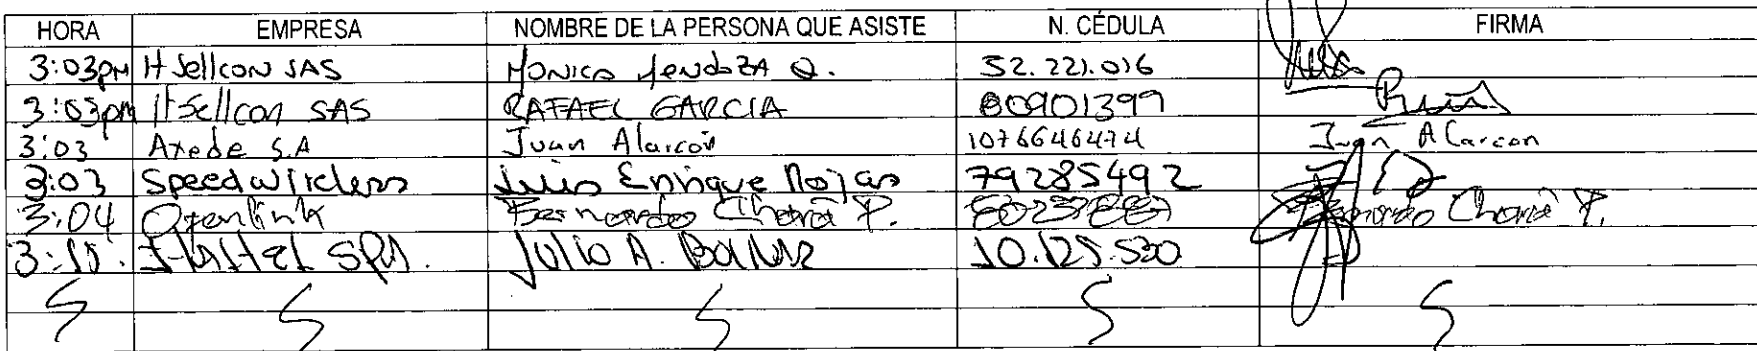 HORA EMPRESA NOMBRE DE LA PERSONA QUE ASISTE N. CÉDULA FIRMA
3:03pm It Sellcon SAS Monica Mendoza Q. 52.221.016
3:03pm It Sellcon SAS RAFAEL GARCIA 80901399
3:03 Axede S.A Juan Alarcón 1076646474 Juan Alarcon
3:03 Speedwireless Luis Enrique Rojas 79285492
3:04 Openlink Bernardo Chavá P. Bernardo Chavá P.
3:10. SPA. Julio A. 10.125.520